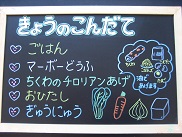 きょうのこんだて
ごはん
マーボーどうふ
ちくわのチロリアンあげ
おひたし
ぎゅうにゅう